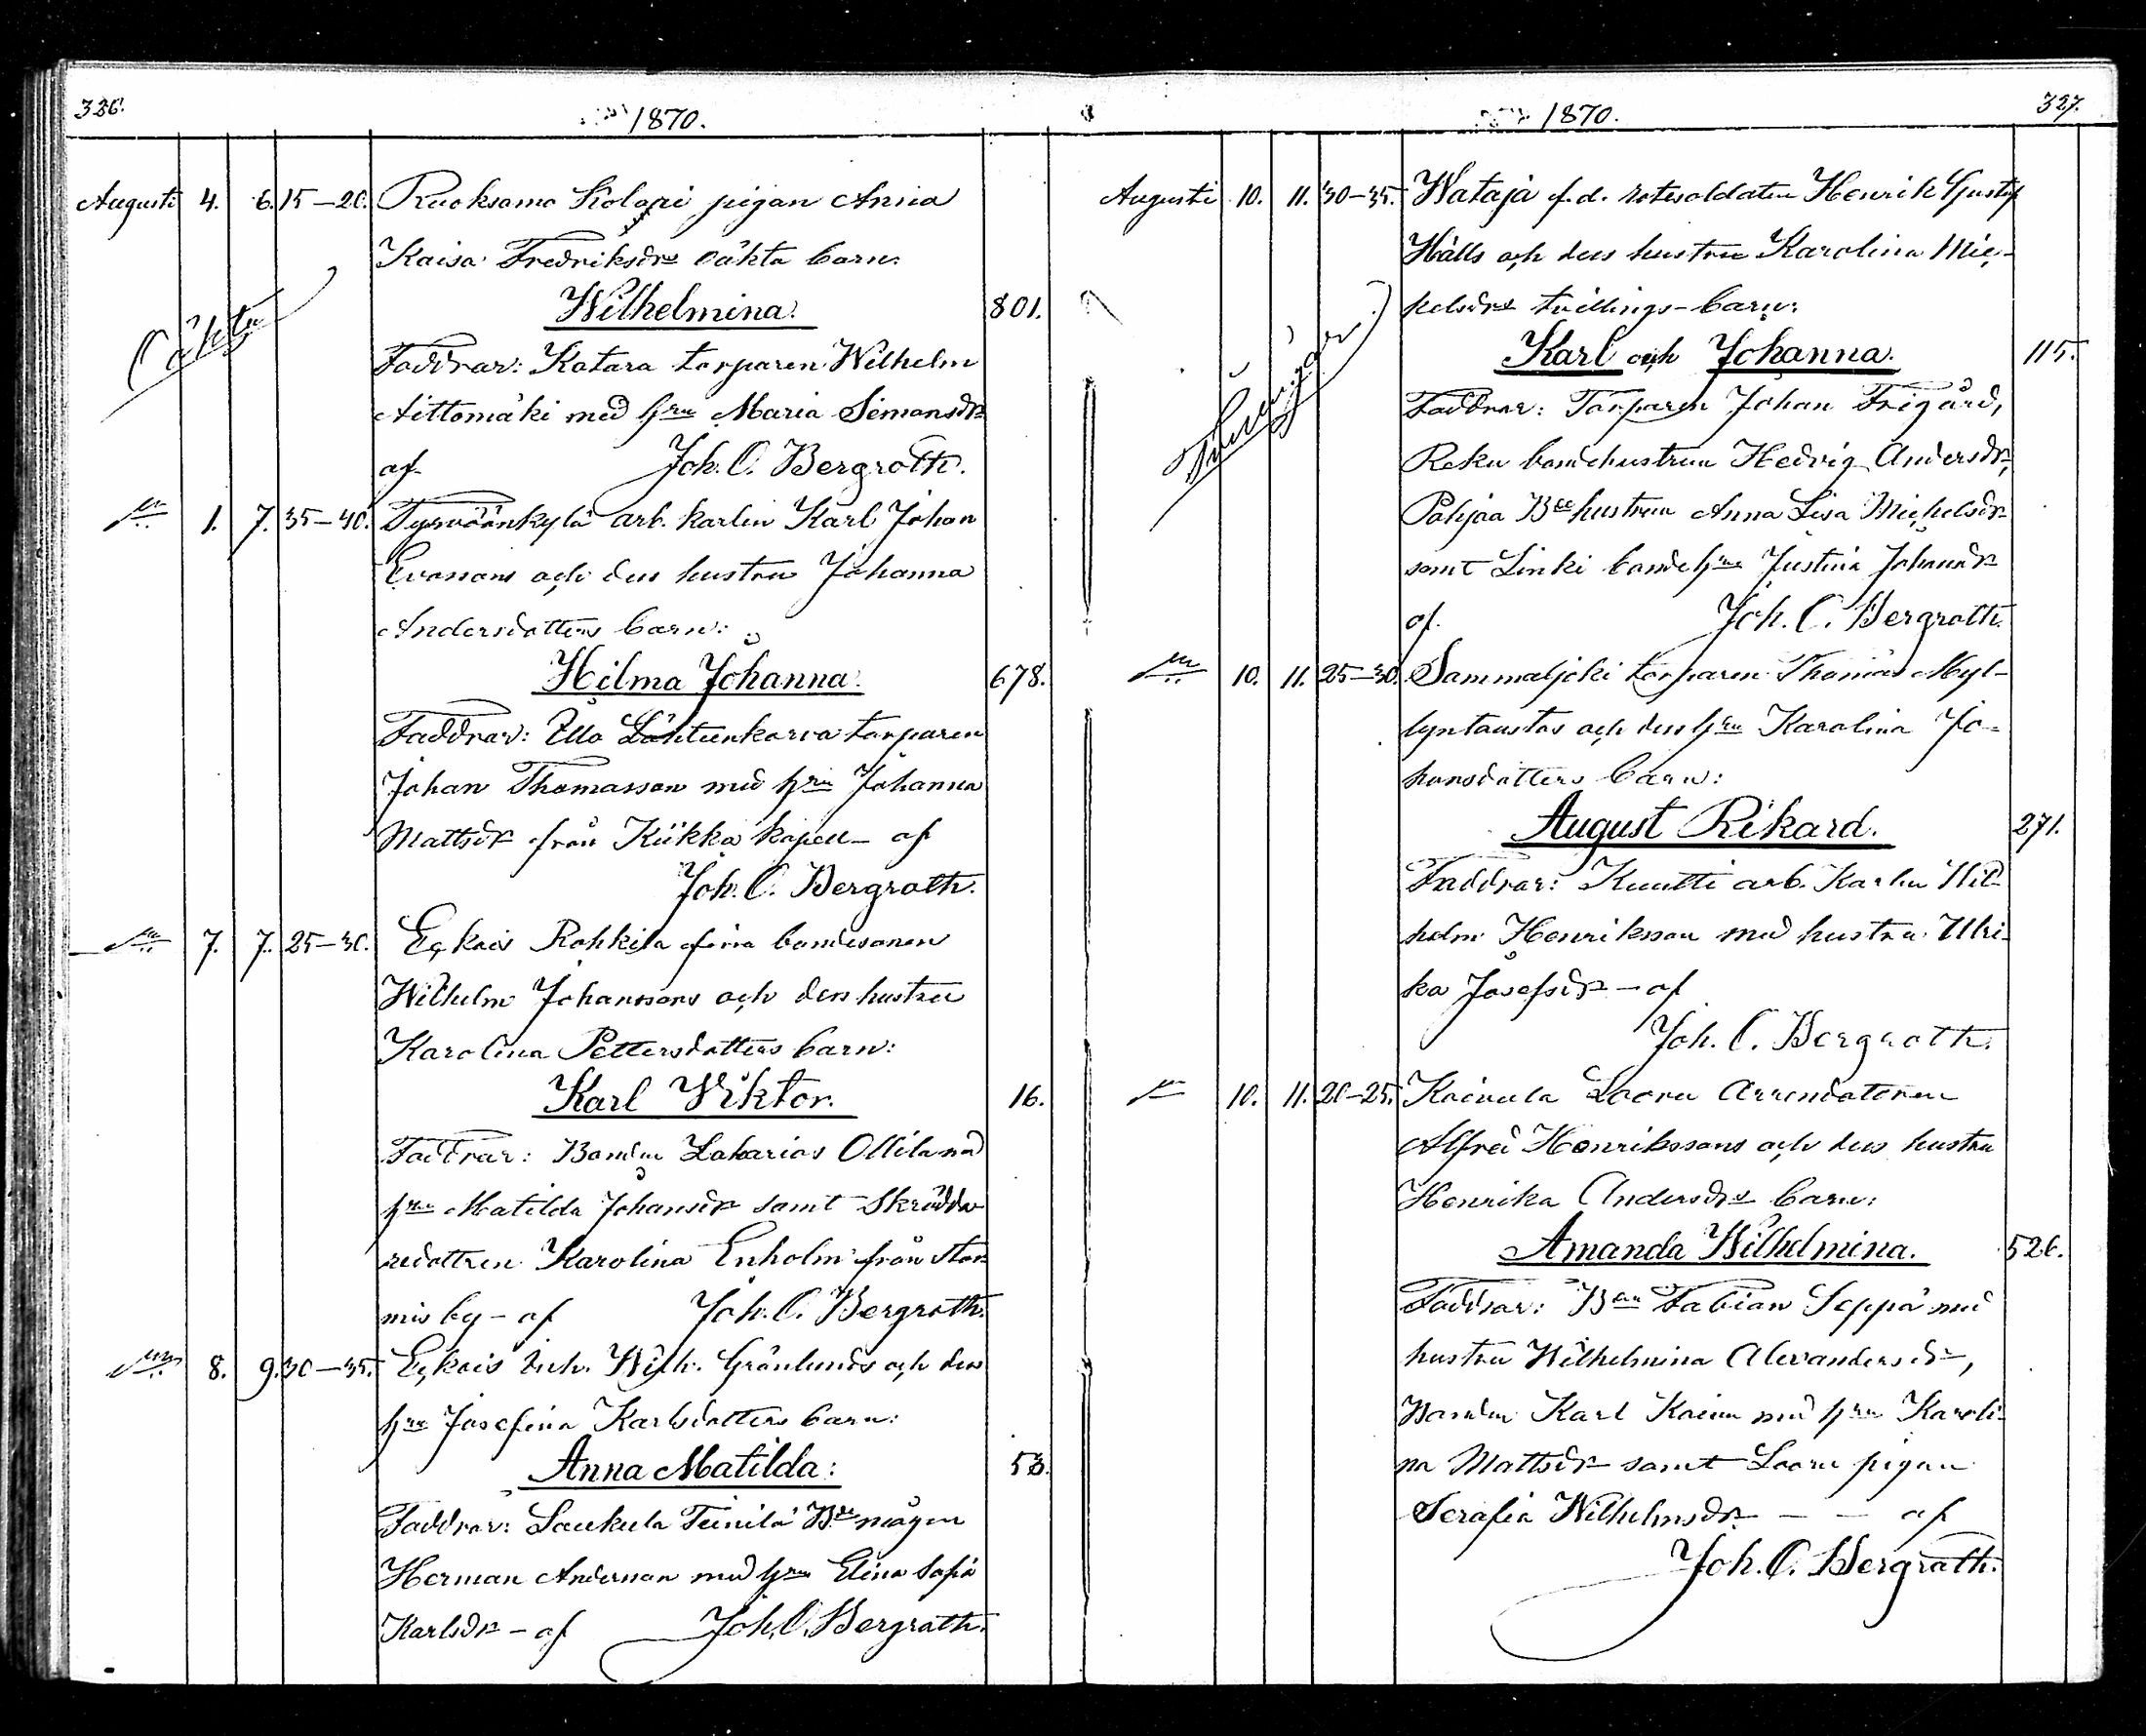 326.
1870.
Augusti 4. 6. 15-20. Ruoksamo Kolari pigan Anna
Kaisa Fredriksdrs oäkta barn:
Oäkta
Wilhelmina. 801.
Faddrar: Katara torparen Wilhelm
Aittomäki med hru Maria Simonsdr
af Joh. O. Bergroth.
1. 7. 35-40. Tyrväänkylä arb. karlen Karl Johan
och dess hustru Johanna
Andersdotters barn:
Hilma Johanna. 678.
Faddrar: Illo torparen
Johan Thomasson med hru Johanna
Mattsdr från Kiikka kapell - af
Joh. O. Bergroth.
7. 7. 25-30. Eçkois Rohkila bondesonen
Wilhelm Johanssons och dess hustru
Karolina Pettersdotters barn:
Karl Viktor. 16.
Faddrar: Bonden Zakarias Ollila med
hru Matilda Johansdr samt Skrädda-
redottren Karolina Enholm från Stor-
mis by - af Joh. O. Bergroth.
8. 9. 30-35. Eçkois Inh. Wilh. Grönlunds och dess
hru Josefina Karlsdotters barn:
Anna Matilda: 53.
Faddrar: Laukula Teinilä mågen
Herman Andersson med hru Elina Sofia
Karlsdr - af Joh. O. Bergroth.
327.
1870.
Augusti 10. 11. 30-35. Wataja f. d. rotesoldaten Henrik Gustaf
Hälls och dess hustru Karolina Miç-
kelsdrs tvillings-barn:
Karl och Johanna. 115.
Faddrar: Torparen Johan Frigård,
Reku bondehustrun Hedvig Andersdr,
Pohjaa hustrun Anna Lisa Michelsdr
samt Linki bondehru Justina Johansdr
af Joh. O. Bergroth.
10. 11. 25-30. Sammaljoki torparen Thomas Myl-
lyntaustas och dess hru Karolina Jo-
hansdotters barn:
August Rikard. 271.
Faddrar: Kuutti arb. Karlen Wil-
helm Henriksson med hustru Ulri-
ka Josefsdr - af
Joh. O. Bergroth.
10. 11. 20-25. Kaivula Looru Arrendatoren
Alfred Henrikssons och dess hustru
Henrika Andersdrs barn:
Amanda Wilhelmina. 526.
Faddrar: Fabian Seppä med
hustru Wilhelmina Alexandersdr,
Bonden Karl med hru Karoli-
na Mattsdr samt Looru pigan
Serafia Wilhelmsdr - - af
Joh. O. Bergroth.